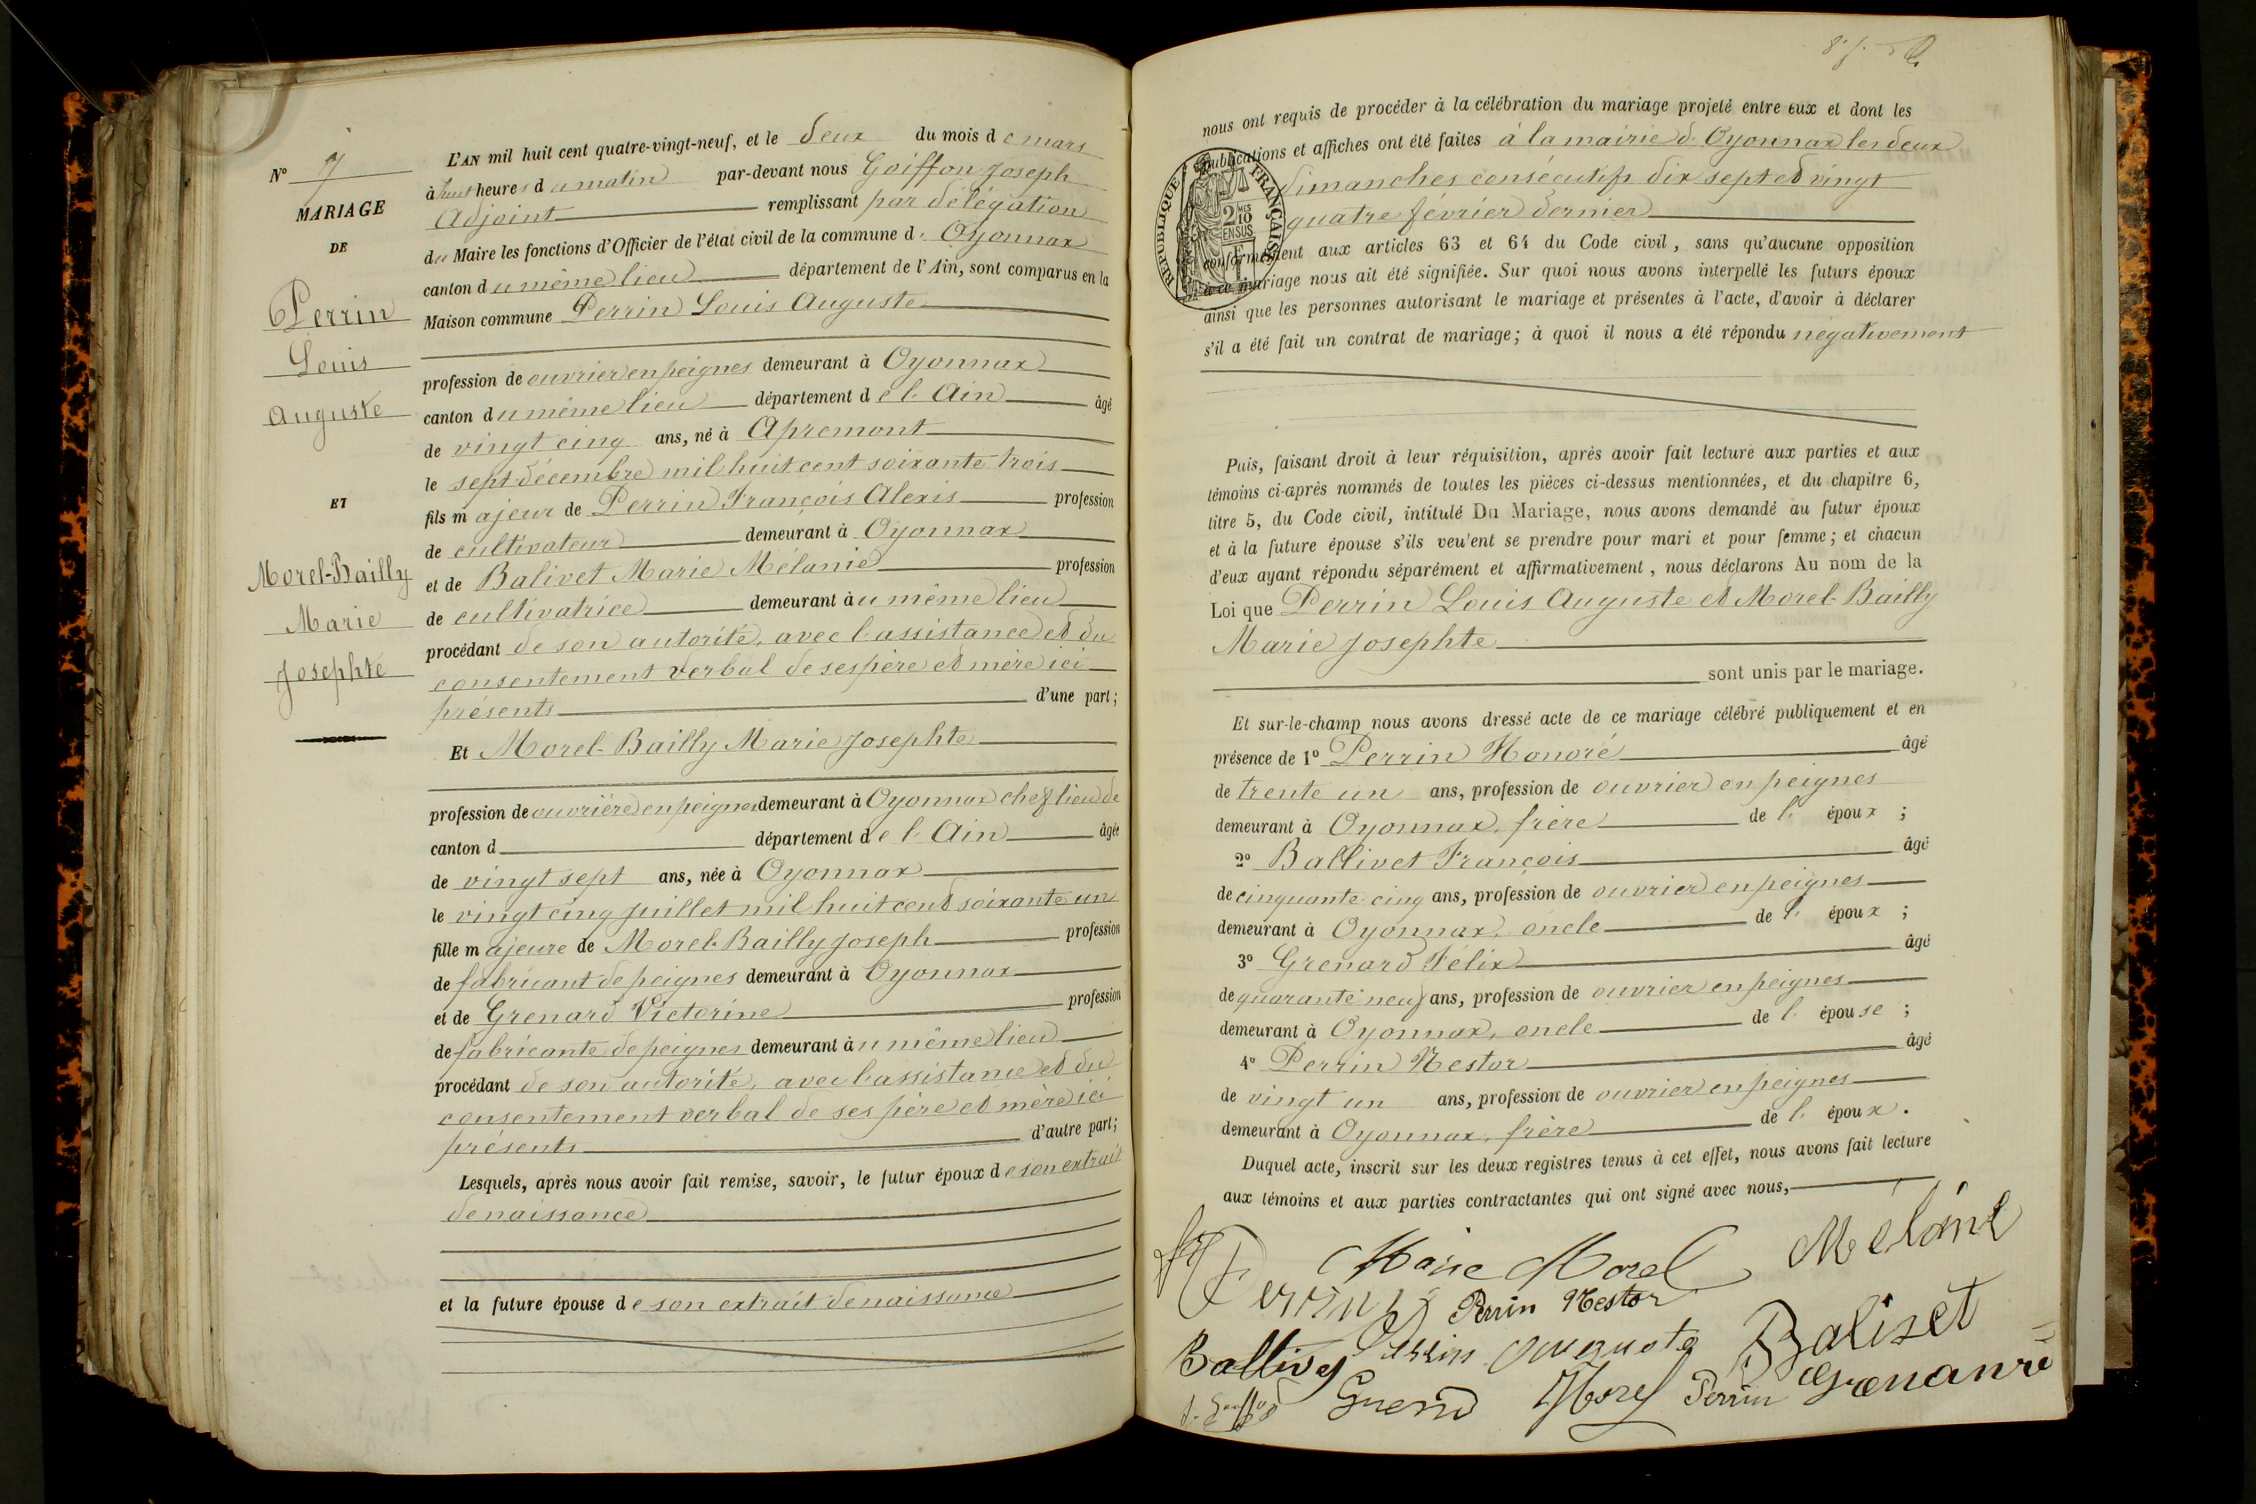 N° 7
MARIAGE
DE
Perrin
Louis
Auguste
ET
Morel-Bailly
Marie
Josephte
L'AN mil huit cent quatre-vingt-neuf, et le deux du mois de mars
à huit heures du matin par-devant nous Goiffon Joseph
Adjoint remplissant par délégation
du Maire les fonctions d'Officier de l'état civil de la commune d' Oyonnax
canton du même lieu département de l'Ain, sont comparus en la
Maison commune Perrin Louis Auguste
profession de ouvrier en peignes demeurant à Oyonnax
canton du même lieu département de l'Ain âgé
de vingt cinq ans, né à Apremont
le sept décembre mil huit cent soixante trois
fils majeur de Perrin François Alexis profession
de cultivateur demeurant à Oyonnax
et de Balivet Marie Mélanie profession
de cultivatrice demeurant au même lieu
procédant de son autorité, avec l'assistance et du
consentement verbal de ses père et mère ici
présents d'une part;
Et Morel-Bailly Marie Josephte
profession de ouvrière en peignes demeurant à Oyonnax chef lieu de
canton d département de l'Ain âgée
de vingt sept ans, née à Oyonnax
le vingt cinq juillet mil huit cent soixante un
fille majeure de Morel-Bailly Joseph profession
de fabricant de peignes demeurant à Oyonnax
et de Grenard Victorine profession
de fabricante de peignes demeurant au même lieu
procédant de son autorité, avec l'assistance et du
consentement verbal de ses père et mère ici
présents d'autre part;
Lesquels, après nous avoir fait remise, savoir, le futur époux de son extrait
de naissance
et la future épouse de son extrait de naissance
nous ont requis de procéder à la célébration du mariage projeté entre eux et dont les
publications et affiches ont été faites à la mairie d'Oyonnax les deux
dimanches consécutifs dix sept et vingt
quatre février dernier
RÉPUBLIQUE FRANÇAISE
2 MES 10
EN SUS
conformément aux articles 63 et 64 du Code civil, sans qu'aucune opposition
à ce mariage nous ait été signifiée. Sur quoi nous avons interpellé les futurs époux
ainsi que les personnes autorisant le mariage et présentes à l'acte, d'avoir à déclarer
s'il a été fait un contrat de mariage; à quoi il nous a été répondu négativement
Puis, faisant droit à leur réquisition, après avoir fait lecture aux parties et aux
témoins ci-après nommés de toutes les pièces ci-dessus mentionnées, et du chapitre 6,
titre 5, du Code civil, intitulé Du Mariage, nous avons demandé au futur époux
et à la future épouse s'ils veulent se prendre pour mari et pour femme; et chacun
d'eux ayant répondu séparément et affirmativement, nous déclarons Au nom de la
Loi que Perrin Louis Auguste et Morel-Bailly
Marie Josephte
sont unis par le mariage.
Et sur-le-champ nous avons dressé acte de ce mariage célébré publiquement et en
présence de 1° Perrin Honoré âgé
de trente un ans, profession de ouvrier en peignes
demeurant à Oyonnax, frère de l'époux;
2° Ballivet François âgé
de cinquante cinq ans, profession de ouvrier en peignes
demeurant à Oyonnax, oncle de l'époux;
3° Grenard Félix âgé
de quarante neuf ans, profession de ouvrier en peignes
demeurant à Oyonnax, oncle de l'épouse;
4° Perrin Nestor âgé
de vingt un ans, profession de ouvrier en peignes
demeurant à Oyonnax, frère de l'époux.
Duquel acte, inscrit sur les deux registres tenus à cet effet, nous avons fait lecture
aux témoins et aux parties contractantes qui ont signé avec nous,
Marie Morel Mélanie
Perrin Perrin Nestor
Ballivet Perrin Auguste Balivet
Morel Perrin Grenard